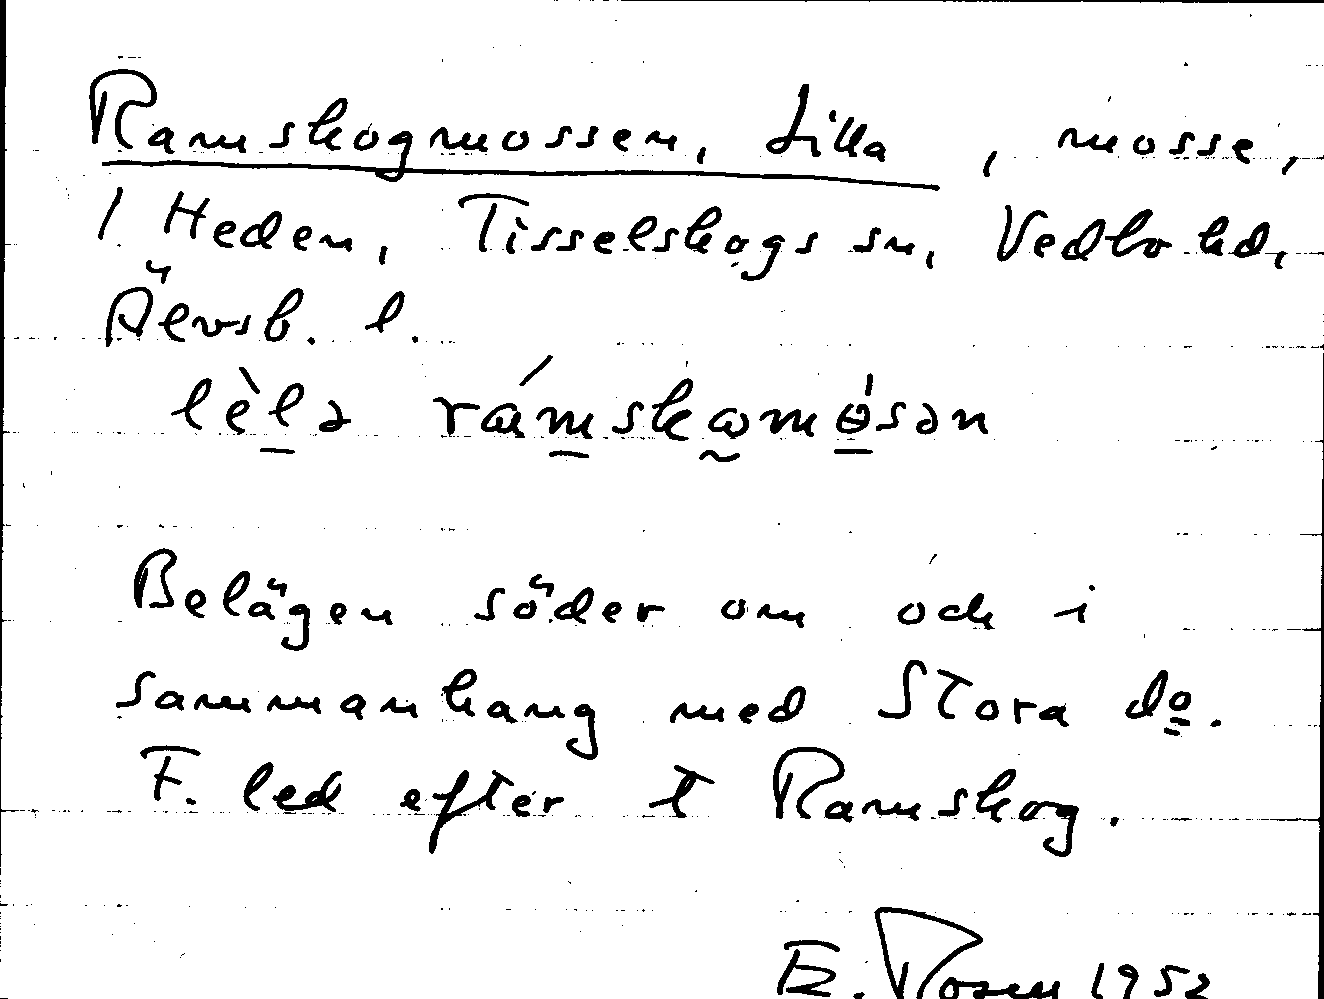 Ramskogmossen, Lilla, mosse,
1 Heden, Tisselskogs sn, Vedbo hd,
Älvsb. l.
lèlə rámskωmɵ́sən
Belägen söder om och i
sammanhang med Stora do.
F. led efter t Ramskog.
E. Rosen 1952